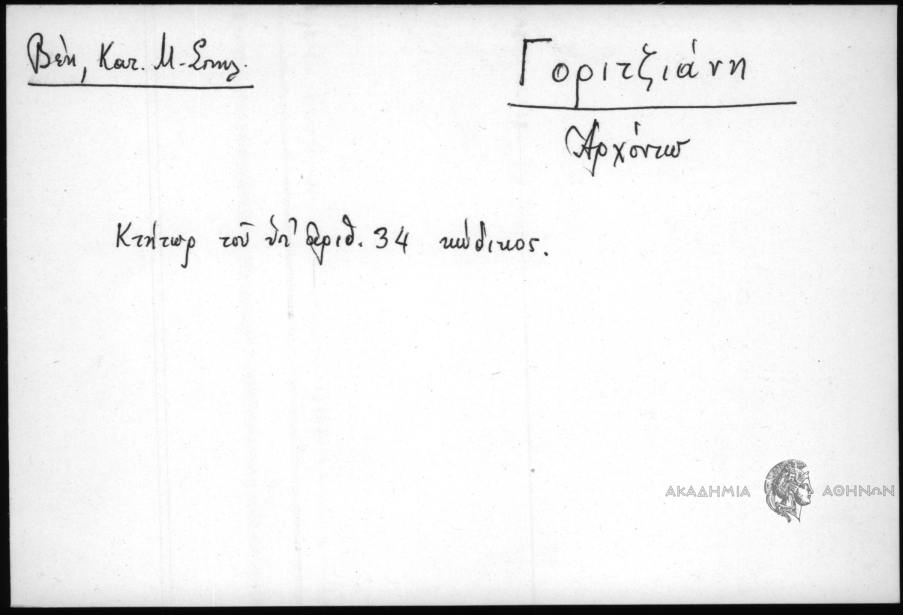 Βέη, Κατ. Μ-Σπηλ.
Γοριτζιάνη
Ἀρχόντω
Κτήτωρ τοῦ ὑπ' ἀριθ. 34 κώδικος.
ΑΚΑΔΗΜΙΑ ΑΘΗΝΩΝ